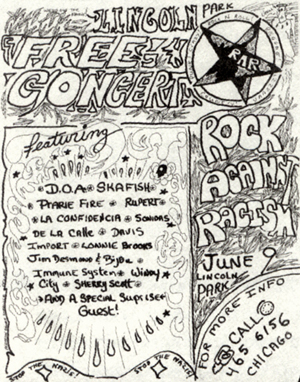 LINCOLN PARK
FREE
CONCERT
RAR
ROCK
AGAINST
RACISM
JUNE 9
LINCOLN
PARK
featuring
D.O.A SKAFISH
PRARIE FIRE RUPERT
LA CONFIDENCIA SONIDAS
DE LA CALLE DAVIS
IMPORT LONNIE BROOKS
Jim Desmond & Bijou
Immune System Windy
City SHERRY SCOTT
AND A SPECIAL Suprise
Guest!
STOP THE NAZIS!
STOP THE MARCH!
FOR MORE INFO
CALL
415 6156
CHICAGO